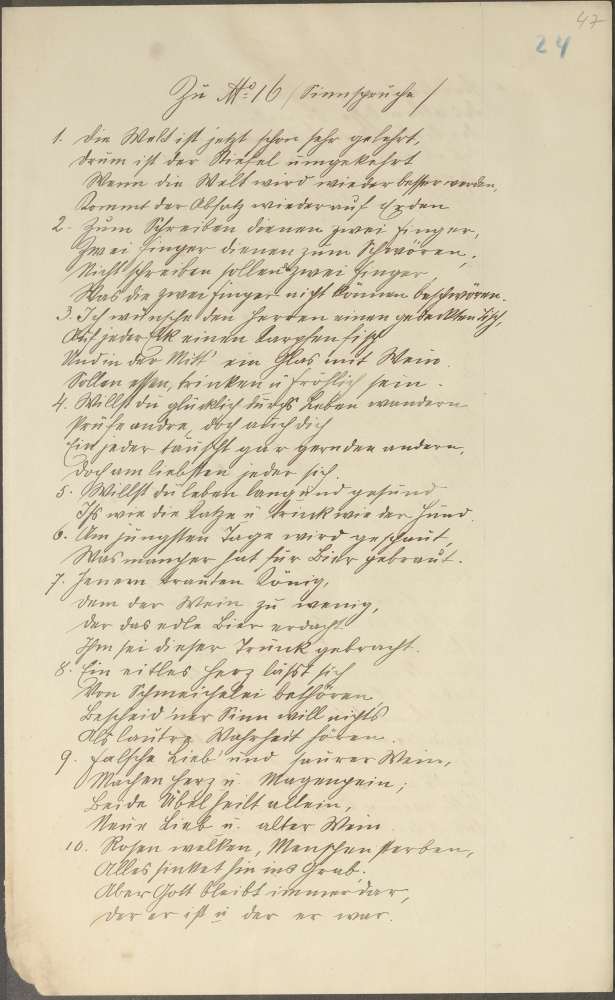 47
24
Zu No: 16 /Sinnsprüche/
1. Die Welt ist jetzt schon sehr gelehrt,
Drum ist der Stiefel umgekehrt
Wenn die Welt wird wieder besser werden,
Kommt der Absatz wieder auf Erden
2. Zum Schreiben dienen zwei Finger,
Zwei Finger dienen zum Schwören,
Nicht schreiben sollen zwei Finger,
Was die zwei Finger nicht können beschwören.
3. Ich wünsche den Herren einen gedeckten Tisch,
Auf jeder Eck einen Karpfenfisch
Und in der Mitt' ein Glas mit Wein
Sollen essen, trinken u fröhlich sein.
4. Willst du glücklich durchs Leben wandern
Prüfe andre, doch auch dich
Ein jeder täuscht gar gern den andern,
Doch am liebsten jeder sich.
5. Willst du leben lang und gesund
Iss wie die Katze u trink wie der Hund.
6. Am jüngsten Tage wird geschaut,
Was mancher hat für Bier gebraut.
7. Jenem brauten König,
Dem der Wein zu wenig,
Der das edle Bier erdacht
Ihm sei dieser Trunk gebracht.
8. Ein eitles Herz lässt sich
Von Schmeichelei bethören
Bescheid'ner Sinn will nichts
Als lautre Wahrheit hören.
9. Falsche Lieb' und saurer Wein,
Machen Herz u. Magenpein;
Beide Übel heilt allein,
Neue Lieb u. alter Wein.
10. Rosen welken, Menschen sterben,
Alles sinket hin ins Grab.
Aber Gott bleibt immerdar,
Der er ist u der er war.